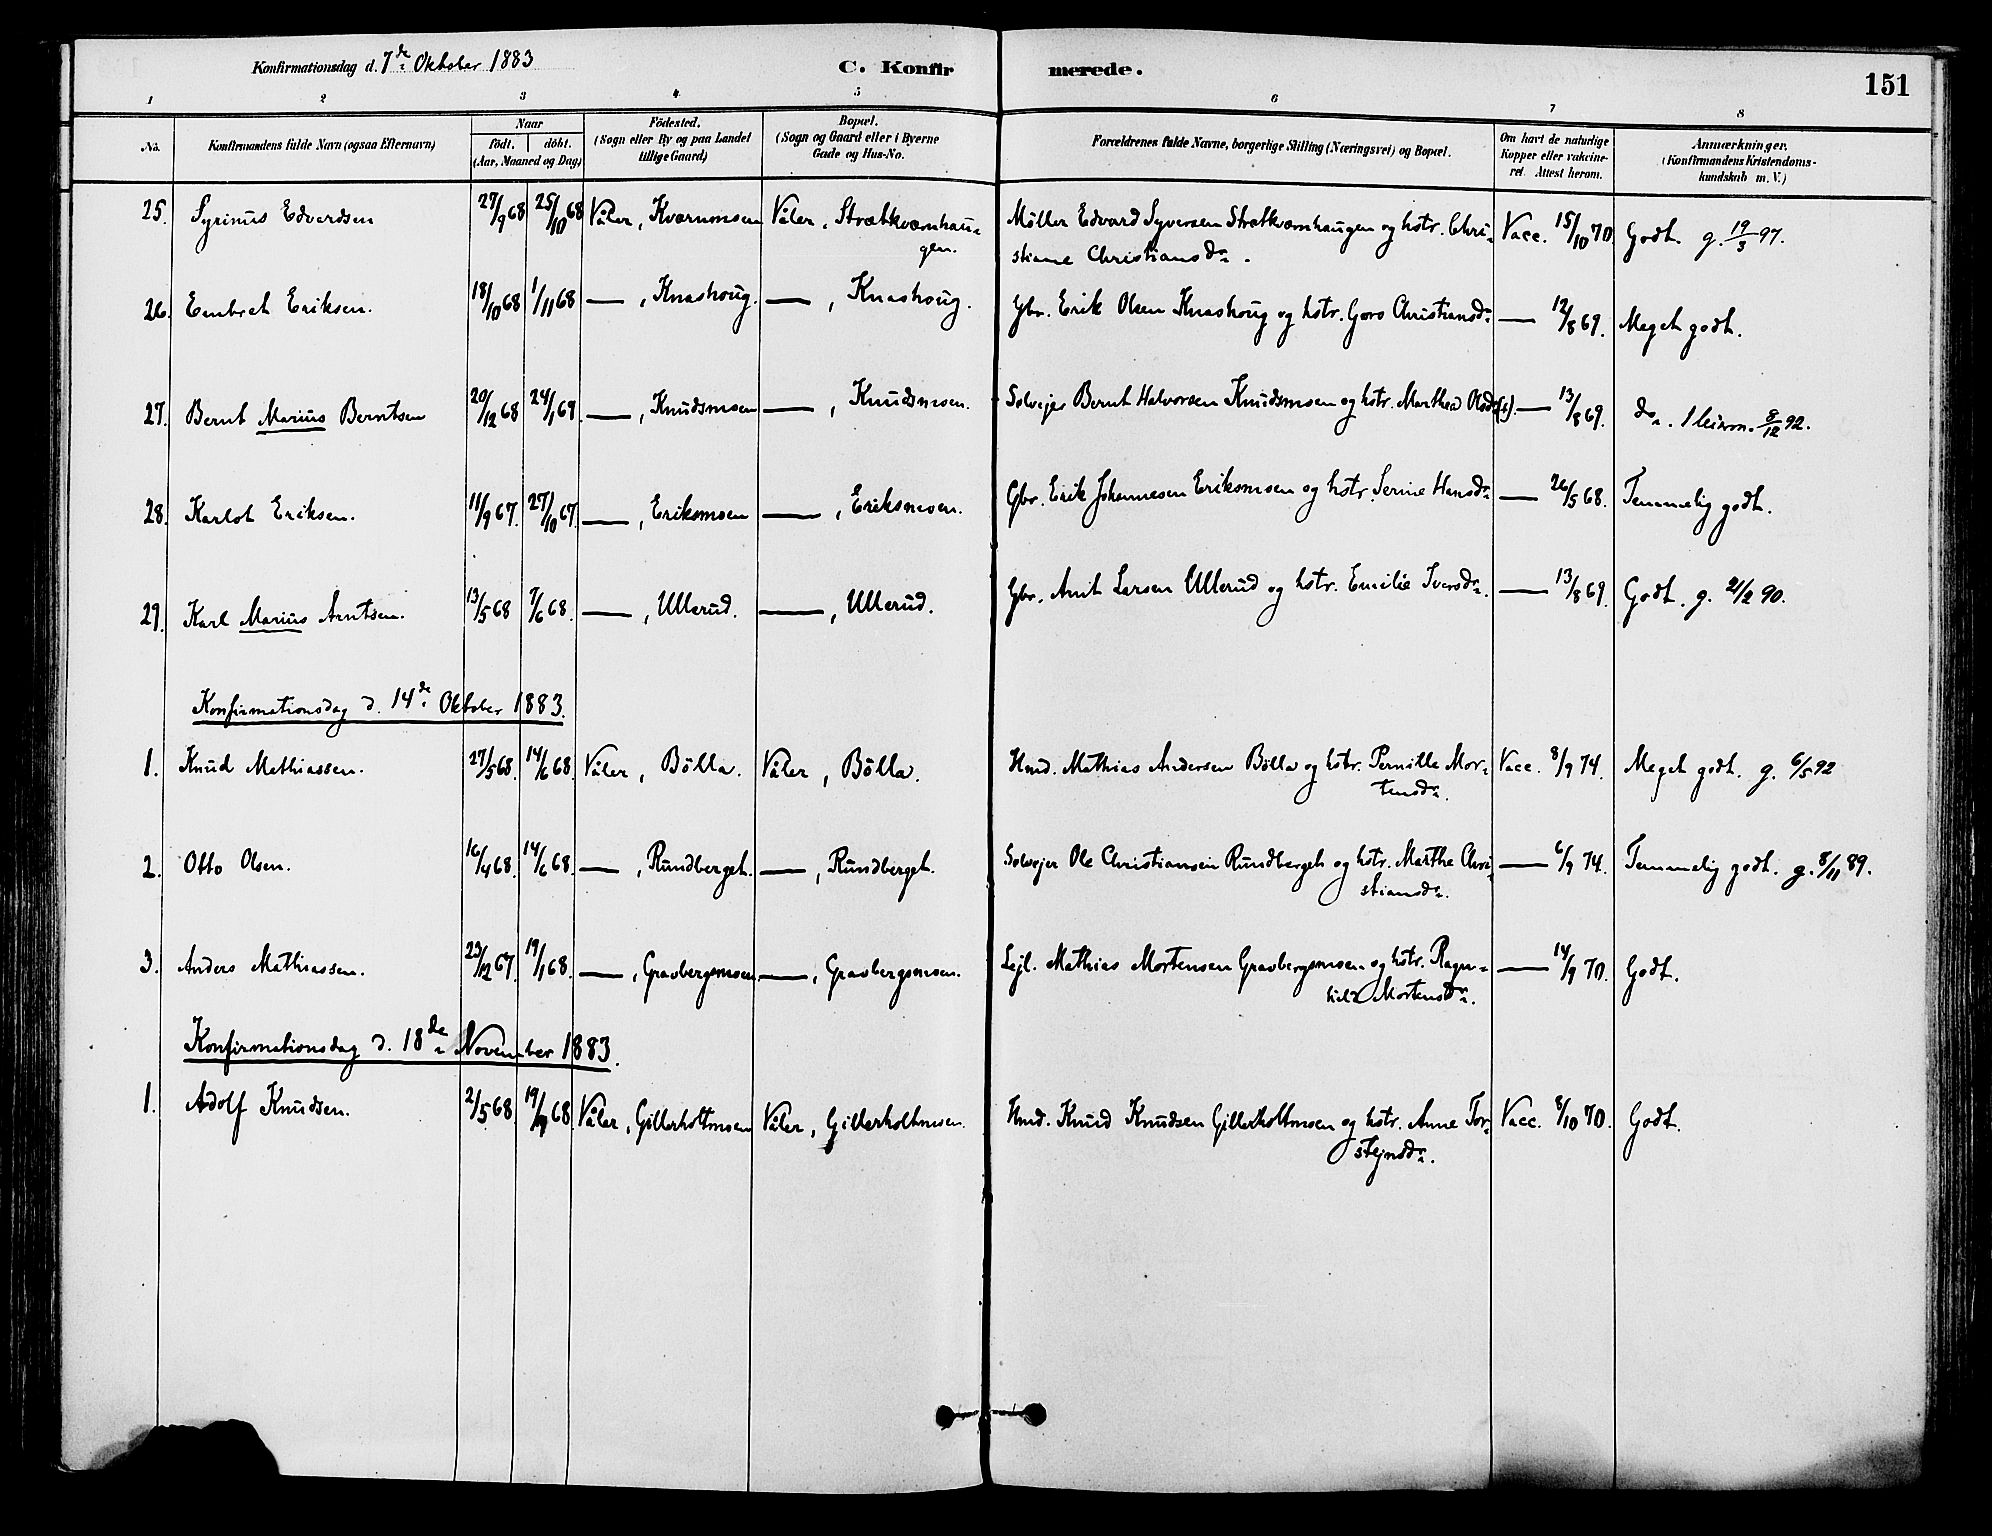 Konfirmationsdag d. 7de Oktober 1883
C. Konfir
merede.
151
1 2 3 4 5 6 7 8
No. Konfirmandens fulde Navn (ogsaa Efternavn) Naar födt. döbt. (Aar, Maaned og Dag) Födested. (Sogn eller By og paa Landet tillige Gaard) Bopæl. (Sogn og Gaard eller i Byerne Gade og Hus-No. Forældrenes fulde Navne, borgerlige Stilling (Næringsvei) og Bopæl. Om havt de naturlige Kopper eller vakcineret. Attest herom. Anmærkninger. (Konfirmandens Kristendomskundskab m. V.)
25. Syrinus Edvardsen 27/9 68 25/10 68 Våler, Kværnmoen Våler, Strætkværnhau- Møller Edvard Syversen Strætkværnhaugen og hstr. Chri- Vacc. 15/10 70. Godt. g. 19/3 97.
gen. stiane Christiansdr.
26. Embret Eriksen. 18/10 68 1/11 68 —, Knashoug. —, Knashoug. Gbr. Erik Olsen Knashoug og hstr. Goro Christiansdr. — 12/8 69. Meget godt.
27. Bernt Marius Berntsen 20/12 68 24/1 69. —, Knudsmoen —, Knudsmoen. Selvejer Bernt Halvorsen Knudsmoen og hstr. Marthea Olsdr. — 13/8 69. do. 8/12 92.
28. Karlot Eriksen. 11/9 67. 27/10 67. —, Eriksmoen —, Eriksmoen. Gbr. Erik Johannesen Eriksmoen og hstr. Serine Hansdr. — 26/5 68. Temmelig godt.
29. Karl Marius Arntsen. 13/5 68 7/6 68. —, Ullerud. —, Ullerud. Gbr. Arnt Larsen Ullerud og hstr. Emilie Iversdr. — 13/8 69. Godt. g. 21/2 90.
Konfirmationsdag d. 14de Oktober 1883.
1. Knud Mathiassen. 27/5 68. 14/6 68. Våler, Bölla. Våler, Bölla. Hmd. Mathias Andersen Bölla og hstr. Pernille Mor- Vacc. 8/9 74. Meget godt. g. 6/5 92
tensdr.
2. Otto Olsen. 16/4 68. 14/6 68. —, Rundberget. —, Rundberget. Selvejer Ole Christiansen Rundberget og hstr. Marthe Chri- — 6/9 74. Temmelig godt. g. 8/11 89.
stiansdr.
3. Anders Mathiassen. 23/12 67. 19/1 68. —, Gravbergsmoen —, Gravbergsmoen. Lejl. Mathias Mortensen Gravbergsmoen og hstr. Ragn- — 14/9 70. Godt.
hild Mortensdr.
Konfirmationsdag d. 18de November 1883.
1. Adolf Knudsen. 2/5 68. 19/7 68 Våler, Gillerholtmoen Våler, Gillerholtmoen. Hmd. Knud Knudsen Gillerholtmoen og hstr. Anne Tor- Vacc. 8/10 70. Godt.
stejnsdr.